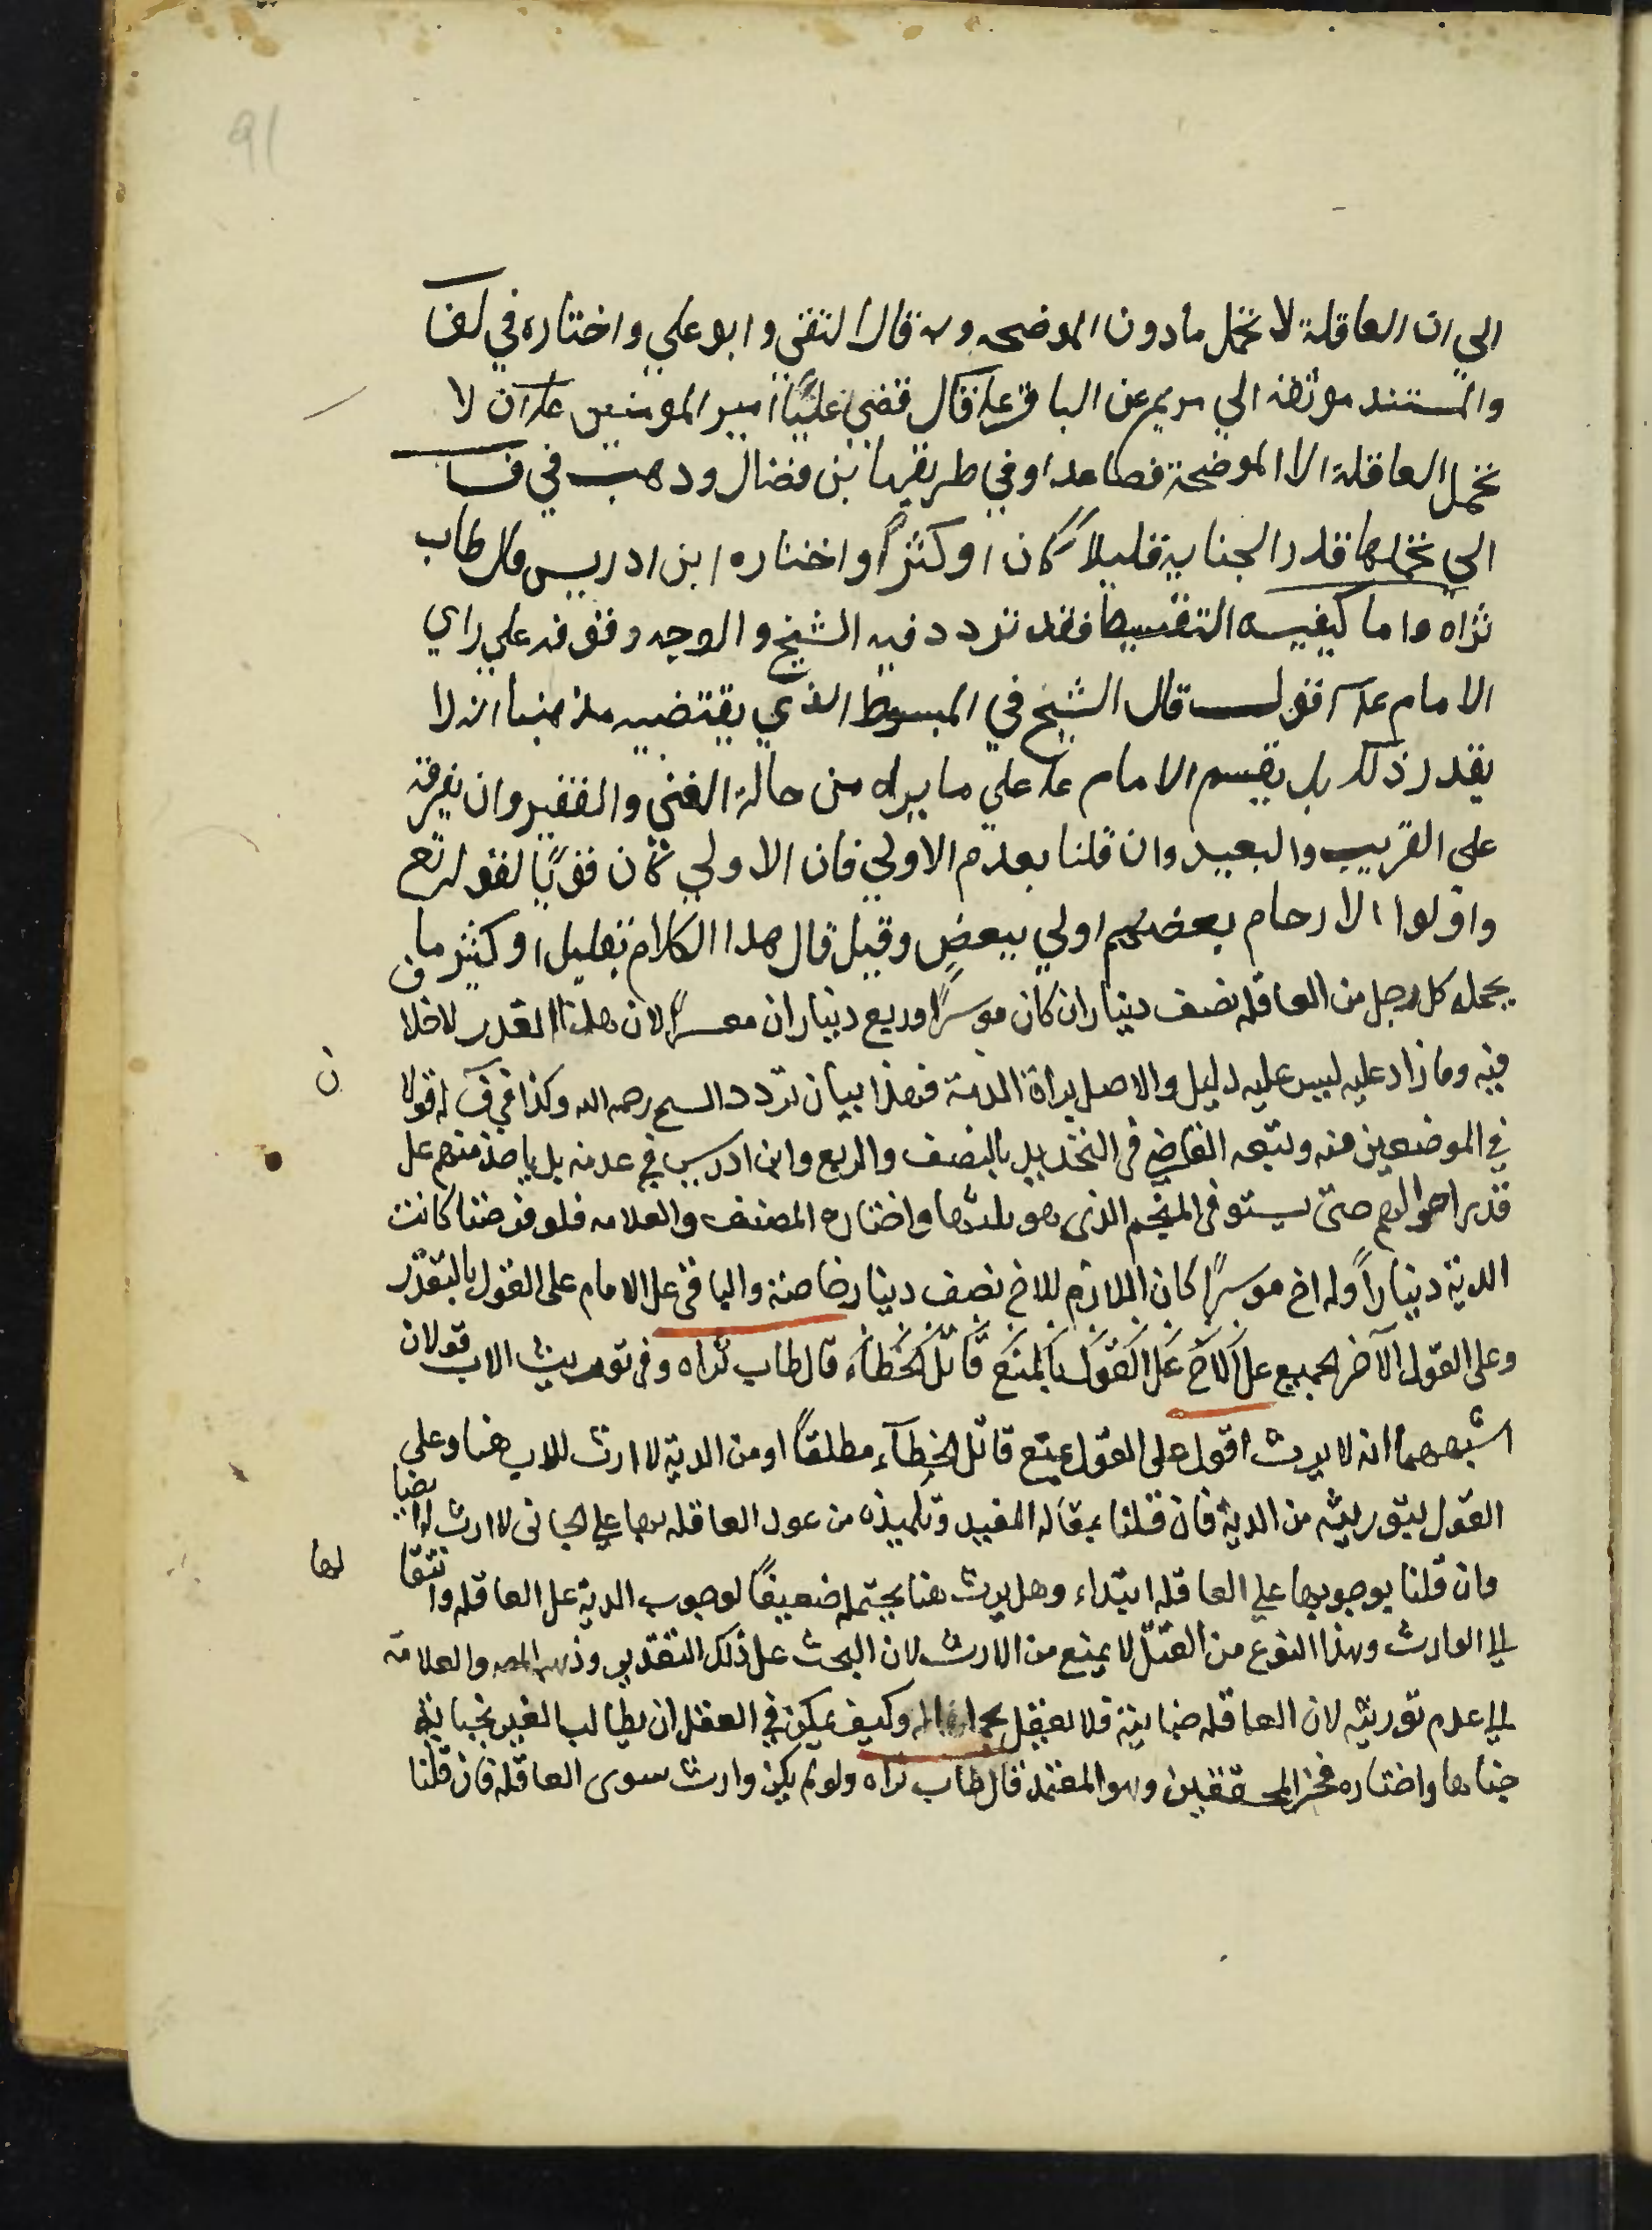 91
الي ان العاقلة لا تحمل مادون الموضحه وبه قال التقي وابو علي واختاره في لف
والمستند موثقه ابي مريم عن الباقر علم قال قضي عليًا امير المومنين علم ان لا
تحمل العاقلة الا الموضحة فصاعدا وفي طريقها بن فضال ودهب في ف
الي تحملها قدر الجناية قليلاً كان او كثرًا واختاره ابن ادريس قال طاب
ثراه واما كيفيه التقسيط فقد تردد فيه الشيخ والوجه وقوفه علي راي
الامام علم اقول قال الشيخ في المبسوط الذي يقتضيه مذهبنا انه لا
يقدر ذلك بل يقسم الامام علم علي ما يراه من حالة الغني والفقير وان يفرقه
علي القريب والبعيد وان قلنا بعدم الاولي فان الاولي كان قويًا لقوله تع
واولوا الارحام بعضهم اولي ببعض وقيل قال هدا الكلام بقليل او كثير ما
يحمله كل رجل من العاقله نصف دينار ان كان موسرًا وربع دينار ان معسرًا لان هذا القدر لاخلا ف
فيه ومازاد عليه ليس عليه دليل والاصل براة الذمة فهذا بيان تردد السح رحمه الله وكذا في ف له قولا ن
في الموضعين منه وتبعه القاضي في التحديد بالنصف والربع وابن ادريس في عدمه بل ياخذ منهم عل
قدر احوالهم حتى يستوفى النجم الذى هو ثلثها واختاره المصنف والعلامه فلو فرضنا كانت
الدية ديناراً وله اخ موسرًا كان اللازم للاخ نصف دينار خاصة والباقى عل الامام على القول بالتقدر
وعلى القول الآخر الجميع عل الاخ عل القول بالمنع قاتل الخطاء قال طاب ثراه وفى توريث الاب قولان
اشبههما انه لا يرث اقول على القول بمنع قاتل الخطآء مطلقاً او من الدية لا ارث للاب هنا وعلى
القول بتوريثه من الدية فان قلنا بمقاله المفيد وتلميذه من عود العاقله بها علي الجانى لا ارث له ايضا
وان قلنا بوجوبها علي العاقله ابتداء وهل يرث هنا يحتمله ضعيفاً لوجوب الدية عل العاقله وانتقا لها
الي الوارث وهذا النوع من القتل لا يمنع من الارث لان البحث عل ذلك التقدير وذهب المصه والعلامة
الي عدم توريثه لان العاقله جنايته فلا يعقل وكيف يمكن في العقل ان يطالب الغير بجناية
جناها واختاره فخر المحققين وهو المعتمد قال طاب ثراه ولو لم يكن وارث سوى العاقله فان قلنا